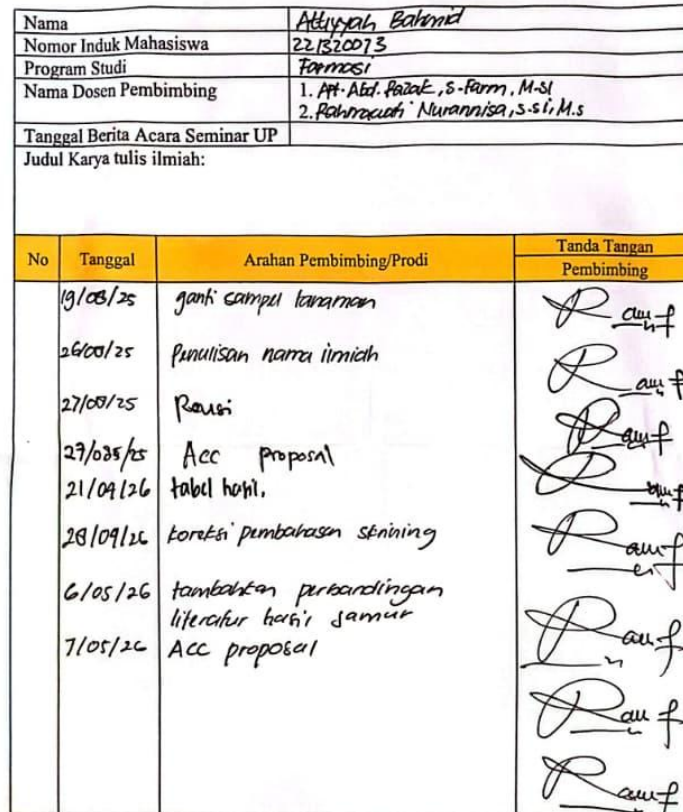 Nama Attiyyah Bahmid
Nomor Induk Mahasiswa 221320073
Program Studi Farmasi
Nama Dosen Pembimbing 1. Apt. Abd. Razak, S-Farm, M-SI
2. Rahmawati Nurannisa, S.Si, M.s
Tanggal Berita Acara Seminar UP
Judul Karya tulis ilmiah:
No Tanggal Arahan Pembimbing/Prodi Tanda Tangan
Pembimbing
19/08/25 ganti sampel tanaman
26/08/25 Penulisan nama ilmiah
27/08/25
Acc proposal
21/04/26 tabel hasil,
28/04/26 koreksi pembahasan skrining
6/05/26 tambahkan perbandingan
literatur hasil jamur
7/05/26 Acc proposal